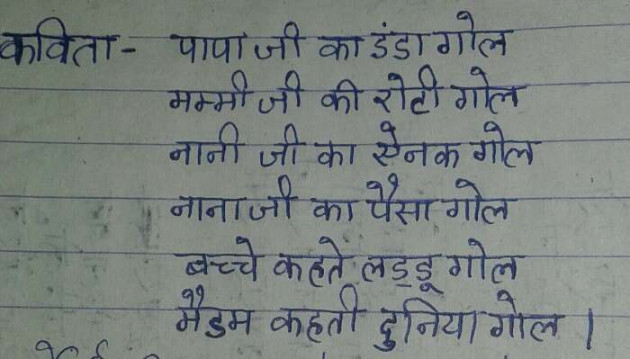 कविता- पापा जी का डंडा गोल
मम्मी जी की रोटी गोल
नानी जी का ऐनक गोल
नाना जी का पैसा गोल
बच्चे कहते लड्डू गोल
मैडम कहती दुनिया गोल ।